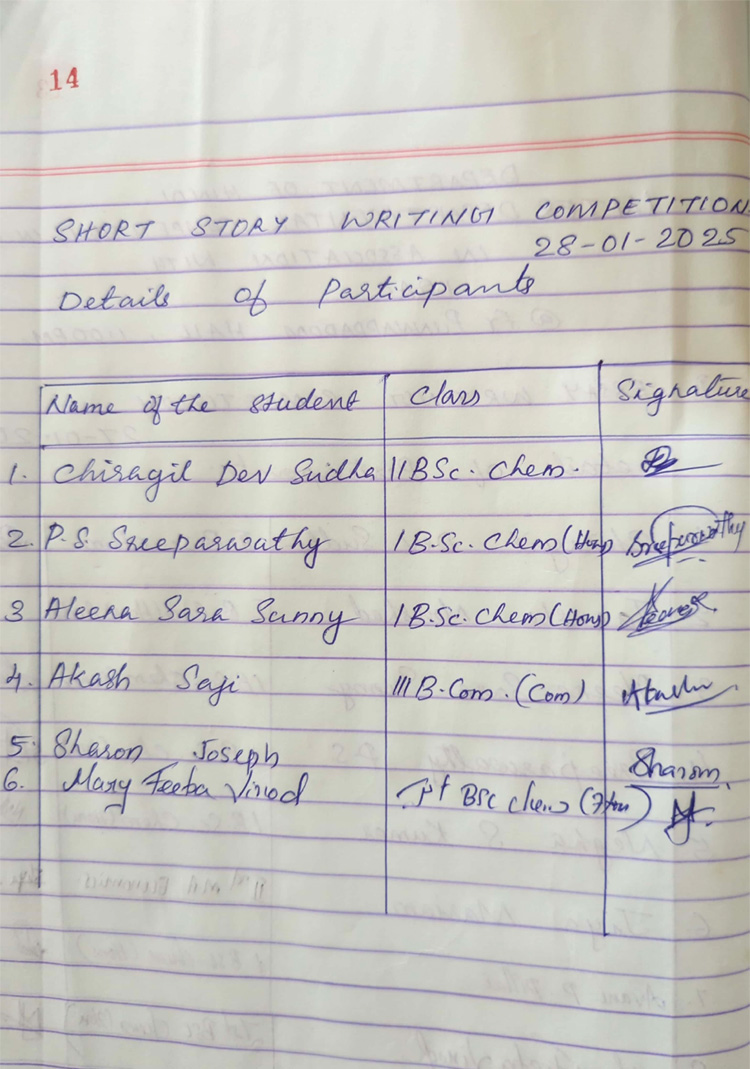 14
SHORT STORY WRITING COMPETITION
28-01-2025
Details of Participants
Name of the student Class Signature
1. Chiragil Dev Sudha II BSc. Chem.
2. P.S. Sreeparwathy I B.Sc. Chem (Hons) Sreeparwathy
3 Aleena Sara Sunny I B.Sc. Chem (Hons)
4. Akash Saji III B.Com. (Com) Akash
5. Sharon Joseph Sharon
6. Mary Feeba Vinod Ist BSc chem (Hon)